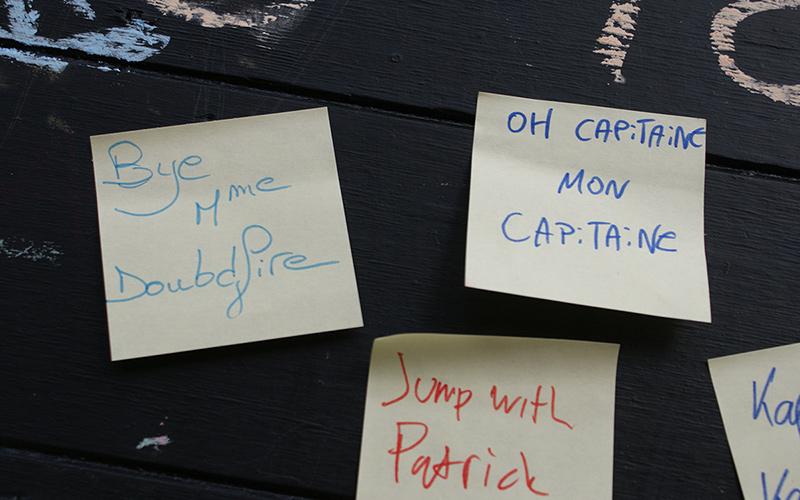 Bye
Mme
Doubdfire
OH CAPiTAiNE
MON
CAPiTAiNE
Jump with
Patrick